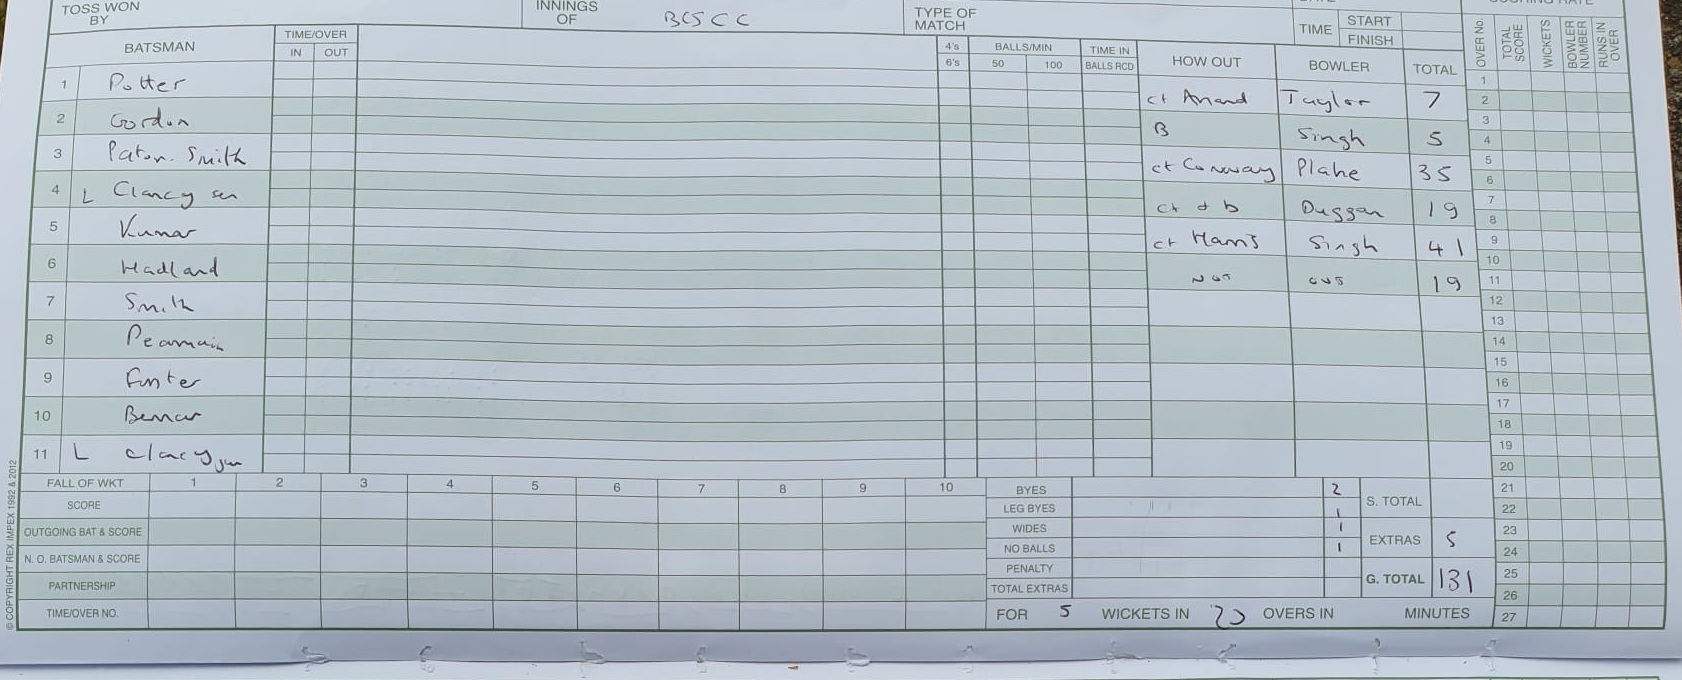 TOSS WON BY
INNINGS OF BCSCC
TYPE OF MATCH
TIME START FINISH
BATSMAN TIME/OVER IN OUT 4's 6's BALLS/MIN 50 100 TIME IN BALLS RCD HOW OUT BOWLER TOTAL
OVER No. TOTAL SCORE WICKETS BOWLER NUMBER RUNS IN OVER
1 Potter ct Anand Taylor 7
2 Gordon B Singh 5
3 Paton-Smith ct Conway Plahe 35
4 L Clancy sen ct & b Duggan 19
5 Kumar ct Harris Singh 41
6 Hadland NOT OUT 19
7 Smith
8 Pearmain
9
10
11 L Clancy jun
1
2
3
4
5
6
7
8
9
10
11
12
13
14
15
16
17
18
19
20
21
22
23
24
25
26
27
FALL OF WKT 1 2 3 4 5 6 7 8 9 10
SCORE
OUTGOING BAT & SCORE
N. O. BATSMAN & SCORE
PARTNERSHIP
TIME/OVER NO.
BYES 2
LEG BYES 1
WIDES 1
NO BALLS 1
PENALTY
TOTAL EXTRAS
S. TOTAL
EXTRAS 5
G. TOTAL 131
FOR 5 WICKETS IN 20 OVERS IN MINUTES
© COPYRIGHT REX IMPEX 1992 & 2012